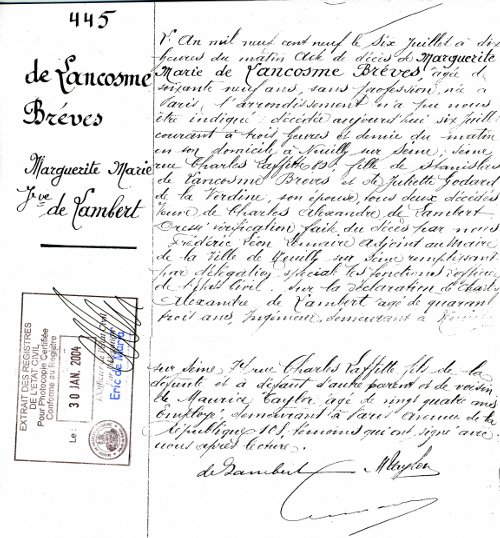 445
de Lancosme
Bréves
Marguerite Marie
Jve
de Lambert
L'An mil neuf cent neuf le Six Juillet à dix
heures du matin Acte de décès de Marguerite
Marie de Lancosme Brèves, agée de
soixante neuf ans, sans profession, née à
Paris, l'arrondissement n'a pu nous
être indiqué; décédée aujourd'hui six Juillet
courant à trois heures et demie du matin
en son domicile à Neuilly sur Seine; Seine
rue Charles Laffitte, fille de Stanislas
de Lancosme Breves et de Juliette Godard
de la Verdine, son épouse, tous deux décédés
veuve de Charles Alexandre de Lambert
Dressé vérification faite du décès par nous
Frédéric Léon Adjoint au Maire
de la Ville de Neuilly sur Seine remplissant
par délégation spéciale les fonctions d'officier
de l'Etat Civil. Sur la déclaration de Charles
Alexandre de Lambert agé de quarante
trois ans, Ingénieur, demeurant à Neuilly
sur Seine rue Charles Laffitte fils de la
défunte et à défaut d'autre parent et de voisin
de Maurice Taylor agé de vingt quatre ans
Employé, demeurant à Paris Avenue de la
République 108, témoins qui ont signé avec
nous après lecture.
de Lambert MTaylor
EXTRAIT DES REGISTRES
DE L'ETAT CIVIL
Pour Photocopie Certifiée
Conforme au Registre
Le : 30 JAN. 2004